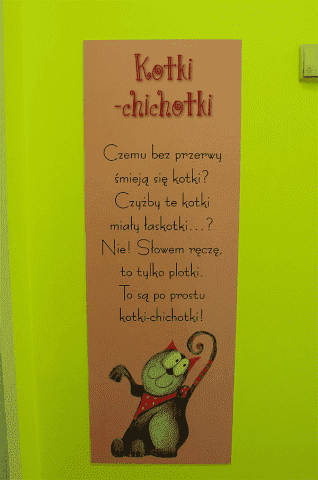 Kotki
-chichotki
Czemu bez przerwy
śmieją się kotki?
Czyżby te kotki
miały łaskotki...?
Nie! Słowem ręczę,
to tylko plotki.
To są po prostu
kotki-chichotki!